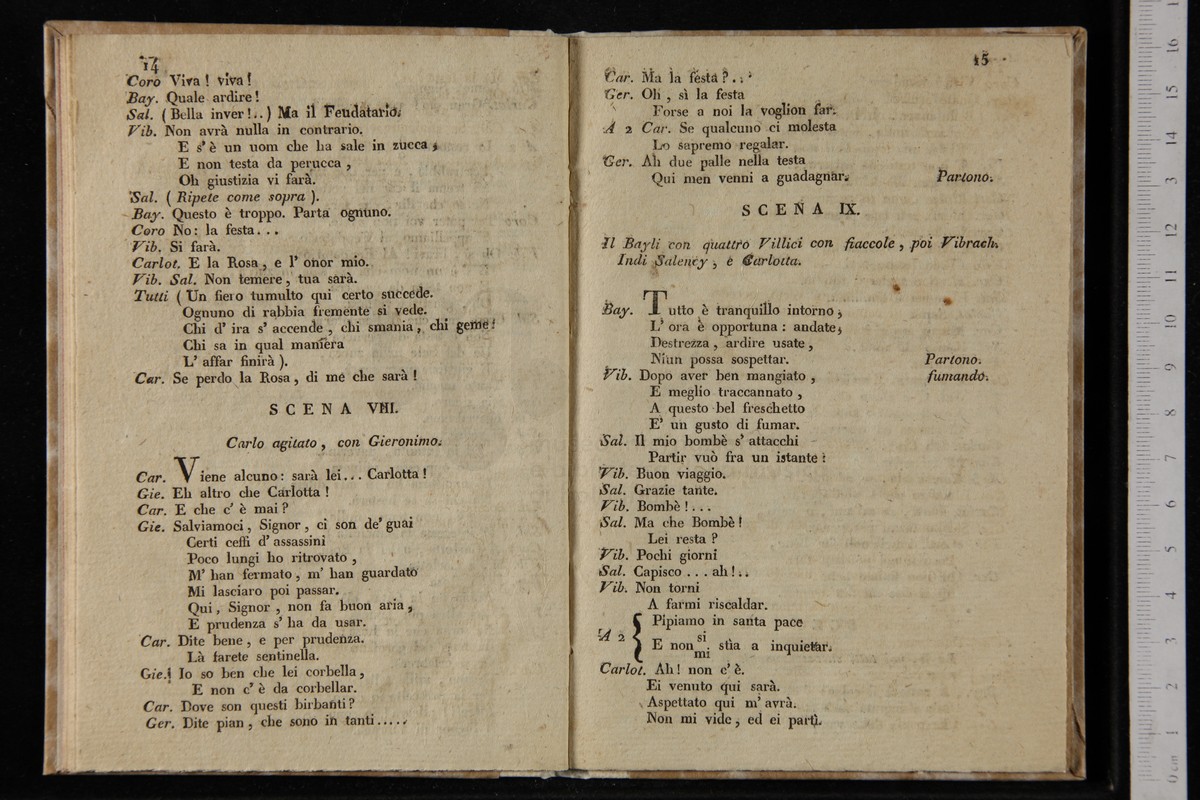 14
Coro Viva ! viva !
Bay. Quale ardire !
Sal. ( Bella inver !.. ) Ma il Feudatario.
Vib. Non avrà nulla in contrario.
E s' è un uom che ha sale in zucca ,
E non testa da perucca ,
Oh giustizia vi farà.
Sal. ( Ripete come sopra ).
Bay. Questo è troppo. Parta ognuno.
Coro No : la festa. . .
Vib. Si farà.
Carlot. E la Rosa , e l' onor mio.
Vib. Sal. Non temere , tua sarà.
Tutti ( Un fiero tumulto qui certo succede.
Ognuno di rabbia fremente si vede.
Chi d' ira s' accende , chi smania , chi geme !
Chi sa in qual maniera
L' affar finirà ).
Car. Se perdo la Rosa , di me che sarà !
SCENA VIII.
Carlo agitato , con Gieronimo.
Car. Viene alcuno : sarà lei... Carlotta !
Gie. Eh altro che Carlotta !
Car. E che c' è mai ?
Gie. Salviamoci , Signor , ci son de' guai
Certi ceffi d' assassini
Poco lungi ho ritrovato ,
M' han fermato , m' han guardato
Mi lasciaro poi passar.
Qui , Signor , non fa buon aria ,
E prudenza s' ha da usar.
Car. Dite bene , e per prudenza.
Là farete sentinella.
Gie. Io so ben che lei corbella ,
E non c' è da corbellar.
Car. Dove son questi birbanti ?
Ger. Dite pian , che sono in tanti.....
15
Car. Ma la festa ? . .
Ger. Oh , sì la festa
Forse a noi la voglion far.
A 2 Car. Se qualcuno ci molesta
Lo sapremo regalar.
Ger. Ah due palle nella testa
Qui men venni a guadagnar. Partono.
SCENA IX.
Il Bayli con quattro Villici con fiaccole , poi Vibrach.
Indi Salency , e Carlotta.
Bay. Tutto è tranquillo intorno ,
L' ora è opportuna : andate ,
Destrezza , ardire usate ,
Niun possa sospettar. Partono.
Vib. Dopo aver ben mangiato , fumando.
E meglio traccannato ,
A questo bel freschetto
E' un gusto di fumar.
Sal. Il mio bombè s' attacchi
Partir vuò fra un istante :
Vib. Buon viaggio.
Sal. Grazie tante.
Vib. Bombè ! . . .
Sal. Ma che Bombè !
Lei resta ?
Vib. Pochi giorni
Sal. Capisco . . . ah ! . .
Vib. Non torni
A farmi riscaldar.
A 2 { Pipiamo in santa pace
E non si mi. stia a inquietar.
Carlot. Ah ! non c' è.
Ei venuto qui sarà.
Aspettato qui m' avrà.
Non mi vide , ed ei partì.